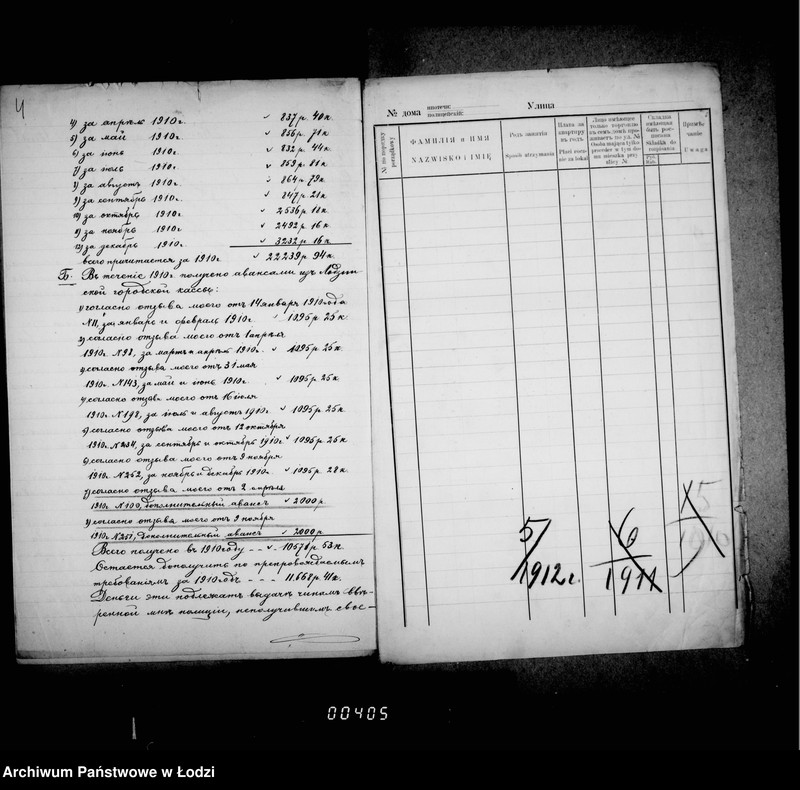 4
4) за апрѣль 1910г. ѵ 837р. 40к.
5) за май 1910г. ѵ 856р. 71к.
6) за іюнь 1910г. ѵ 832р. 44к.
7) за іюль 1910г. ѵ 859р. 81к.
8) за августъ 1910г. 864р. 79к.
9) за сентябрь 1910г. ѵ 847р. 21к.
10) за октябрь 1910г. ѵ 2536р. 18к.
11) за ноябрь 1910г. ѵ 2492р. 16к.
12) за декабрь 1910г. ѵ 3232р. 16к.
всего причитается за 1910г. ѵ 22239р. 94к.
Б. Въ теченіе 1910г. получено авансами изъ Лодзин-
ской городской кассы:
1) согласно отзыва моего отъ 14 января 1910 года
№11, за январь и февраль 1910г. ѵ 1095р. 25к.
2) согласно отзыва моего отъ 1 апрѣля
1910г. №98, за мартъ и апрѣль 1910г. ѵ 1095р. 25к.
3) согласно отзыва моего отъ 31 мая
1910г. №143, за май и іюнь 1910г. ѵ 1095р. 25к.
4) согласно отзыва моего отъ 16 іюля
1910г. №198, за іюль и августъ 1910г. ѵ 1095р. 25к.
5) согласно отзыва моего отъ 12 октября
1910г. №234, за сентябрь и октябрь 1910г. ѵ 1095р. 25к.
6) согласно отзыва моего отъ 9 ноября
1910г. №252, за ноябрь и декабрь 1910г. ѵ 1095р. 28к.
7) согласно отзыва моего отъ 2 апрѣля
1910г. №100, дополнительный авансъ ѵ 2000р.
8) согласно отзыва моего отъ 9 ноября
1910г. №251, дополнительный авансъ ѵ 2000р.
Всего получено въ 1910 году - - ѵ - 10571р. 53к.
Остается дополучить по препровождаемымъ
требованіямъ за 1910 годъ - - - 11.668р. 41к.
Деньги эти подлежатъ выдачѣ чинамъ ввѣ-
ренной мнѣ полиціи, неполучившимъ свое-
№ дома ипотечн: полицейскій: Улица
№ по порядку porządkowy
ФАМИЛІЯ и ИМЯ
NAZWISKO i IMIĘ
Родъ занятія
Sposób utrzymania
Плата за квартиру въ годъ.
Płaci rocznie za lokal
Лицо имѣющее только торговлю въ семъ домѣ проживаетъ по ул. №
Osoba mająca tylko proceder w tym domu mieszka przy ulicy №
Складка имѣющая быть росписана
Składka do rozpisania
Руб. Rub.
Примѣчаніе.
Uwaga
5/1912г.
6
1911
X5
00405
Archiwum Państwowe w Łodzi